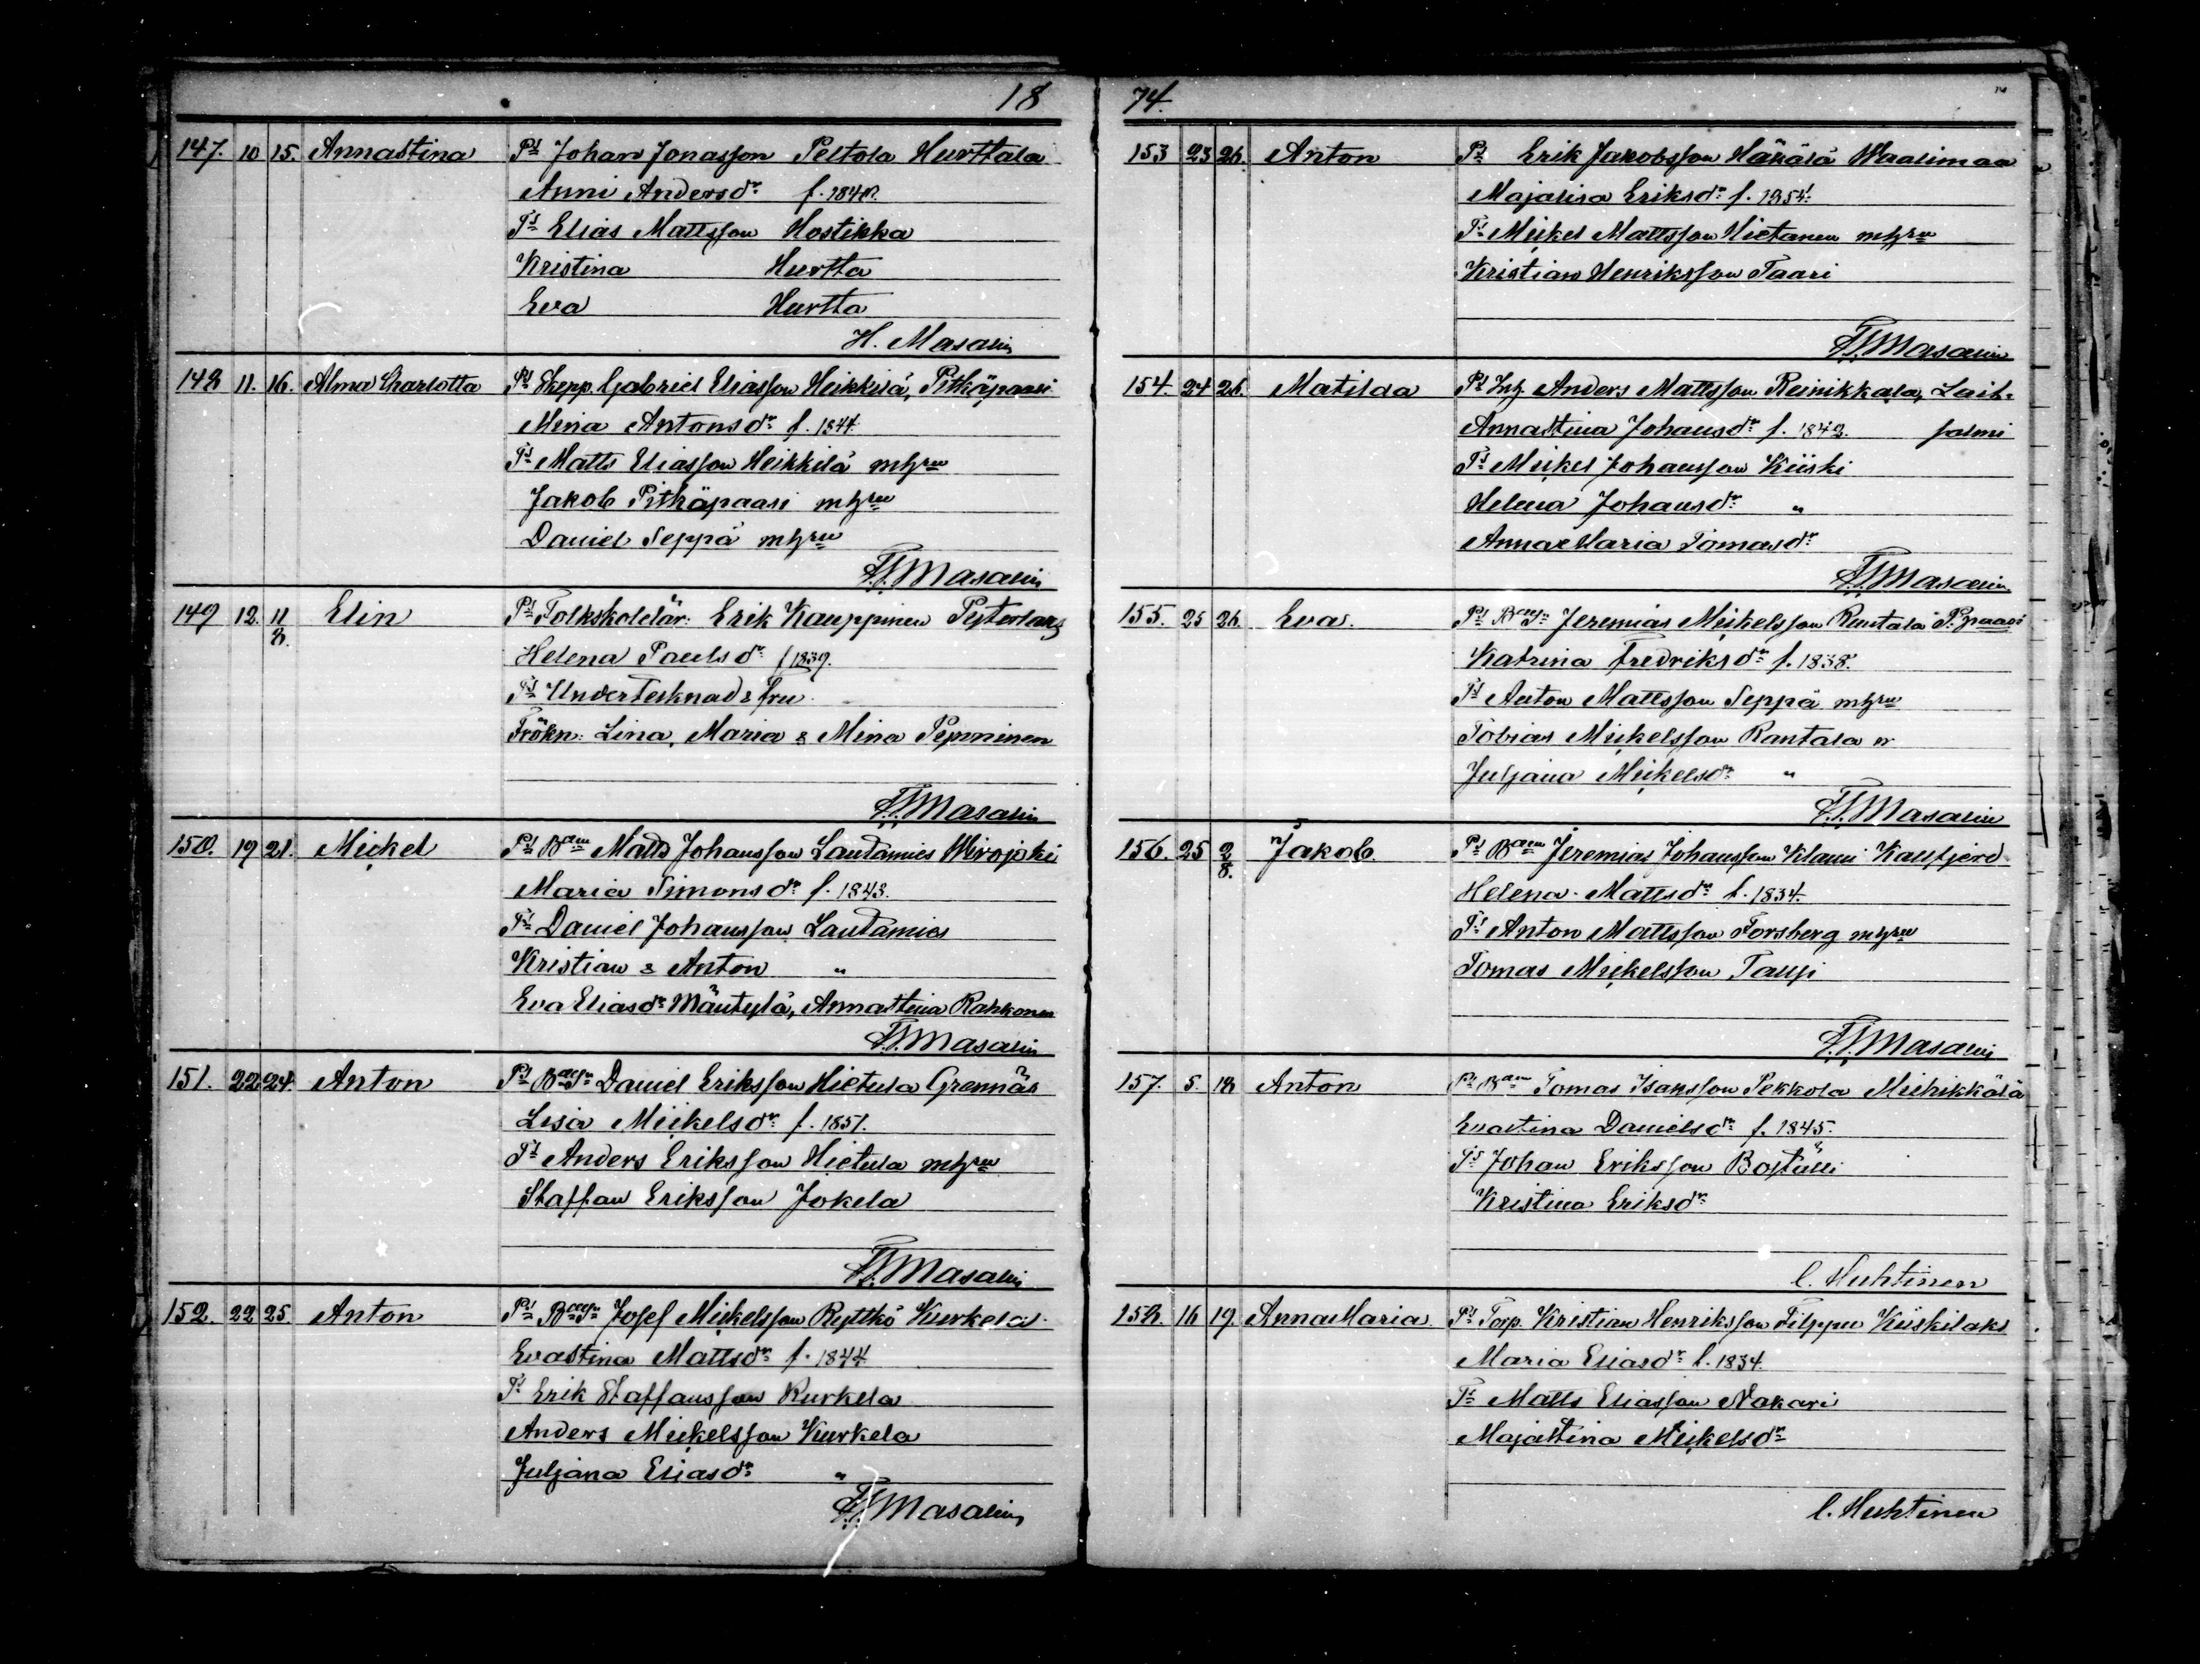 18
147. 10 15. Annastina Pr Johan Jonasson Peltola Hurttala
Anni Andersdr f. 1840.
Tr Elias Mattsson Hostikka
Kristina Hurtta
Eva Hurtta
H. Masalin
148 11. 16. Alma Charlotta Pr Skepp. Gabriel Eliasson Heikkilä, Pitkäpaasi
Mina Antonsdr f. 1844.
Tr Matts Eliasson Heikkilä m hru
Jakob Pitkäpaasi m hru
Daniel Seppä m hru
H. Masalin
149 12. 11/8. Elin Pr Folkskolelär: Erik Kauppinen Pyterlaks
Helena Paulsdr f 1839.
Tr Undertecknad & fru
Frökn: Lina, Maria & Mina Pepninen
H. Masalin
150. 19 21. Mickel Pr Bm Matts Johansson Lautamies Wirojoki
Maria Simonsdr f. 1843.
Tr Daniel Johansson Lautamies
Kristian & Anton "
Eva Eliasdr Mäntylä, Annastina Rahkonen
H. Masalin
151. 22 24. Anton Pr Daniel Eriksson Hietula Grennäs
Lisa Mickelsdr f. 1851.
Tr Anders Eriksson Hietula m hru
Staffan Eriksson Jokela
H. Masalin
152. 22 25. Anton Pr Josef Mickelsson Ryttkö Kurkela
Evastina Mattsdr f. 1844
Tr Erik Staffansson Kurkela
Anders Mickelsson Kurkela
Juljana Eliasdr "
H. Masalin
74.
153 23 26. Anton Pr Erik Jakobsson Häkälä Waalimaa
Majalisa Eriksdr f. 1854.
Tr Mickel Mattsson Hietanen m hru
Kristian Henriksson Taari
H. Masalin
154. 24 26. Matilda Pr Inh. Anders Mattsson Reinikkala, Lait-
Annastina Johansdr f. 1842. salmi
Tr Mickel Johansson Kiiski
Helena Johansdr "
Anna Maria Tomasdr
H. Masalin
155. 25 26. Eva. Pr Jeremias Mickelsson Rantala P. paasi
Katrina Fredriksdr f. 1838.
Tr Anton Mattsson Seppä m hru
Tobias Mickelsson Rantala
Juljana Mickelsdr "
H. Masalin
156. 25 2/8. Jakob. Pr Bm Jeremias Johansson Klami Kallfjerd
Helena Mattsdr f. 1834.
Tr Anton Mattsson Forsberg m hru
Tomas Mickelsson
H. Masalin
157. 5. 18 Anton Pr Bm Tomas Isaksson Pekkola Miehikkälä
Evastina Danielsdr f. 1845.
Tr Johan Eriksson
Kristina Eriksdr
C. Huhtinen
158. 16 19. Anna Maria. Pr Torp. Kristian Henriksson Filppu Kiiskilaks
Maria Eliasdr f. 1834.
Tr Matts Eliasson Nakari
Majastina Mickelsdr
C. Huhtinen